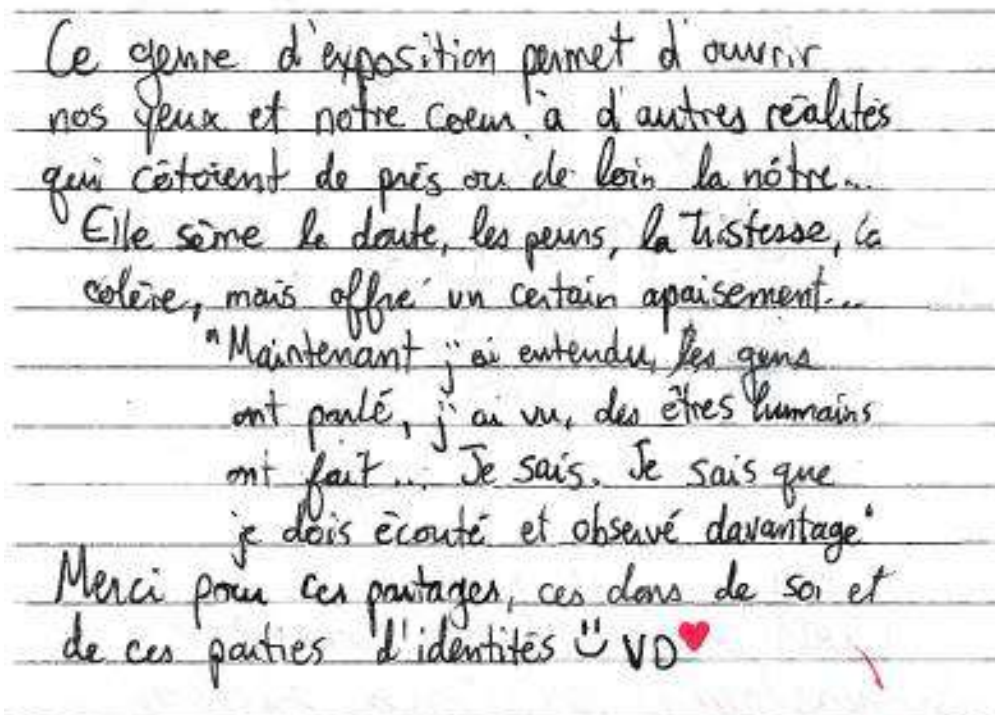 Ce genre d'exposition permet d'ouvrir
nos yeux et notre coeur à d'autres réalités
qui côtoient de près ou de loin la nôtre...
Elle sème le doute, les peurs, la tristesse, la
colère, mais offre un certain apaisement...
"Maintenant j'ai entendu, les gens
ont parlé, j'ai vu, des êtres humains
ont fait... Je sais. Je sais que
je dois écouté et observé davantage"
Merci pour ces partages, ces dons de soi et
de ces parties d'identités VD